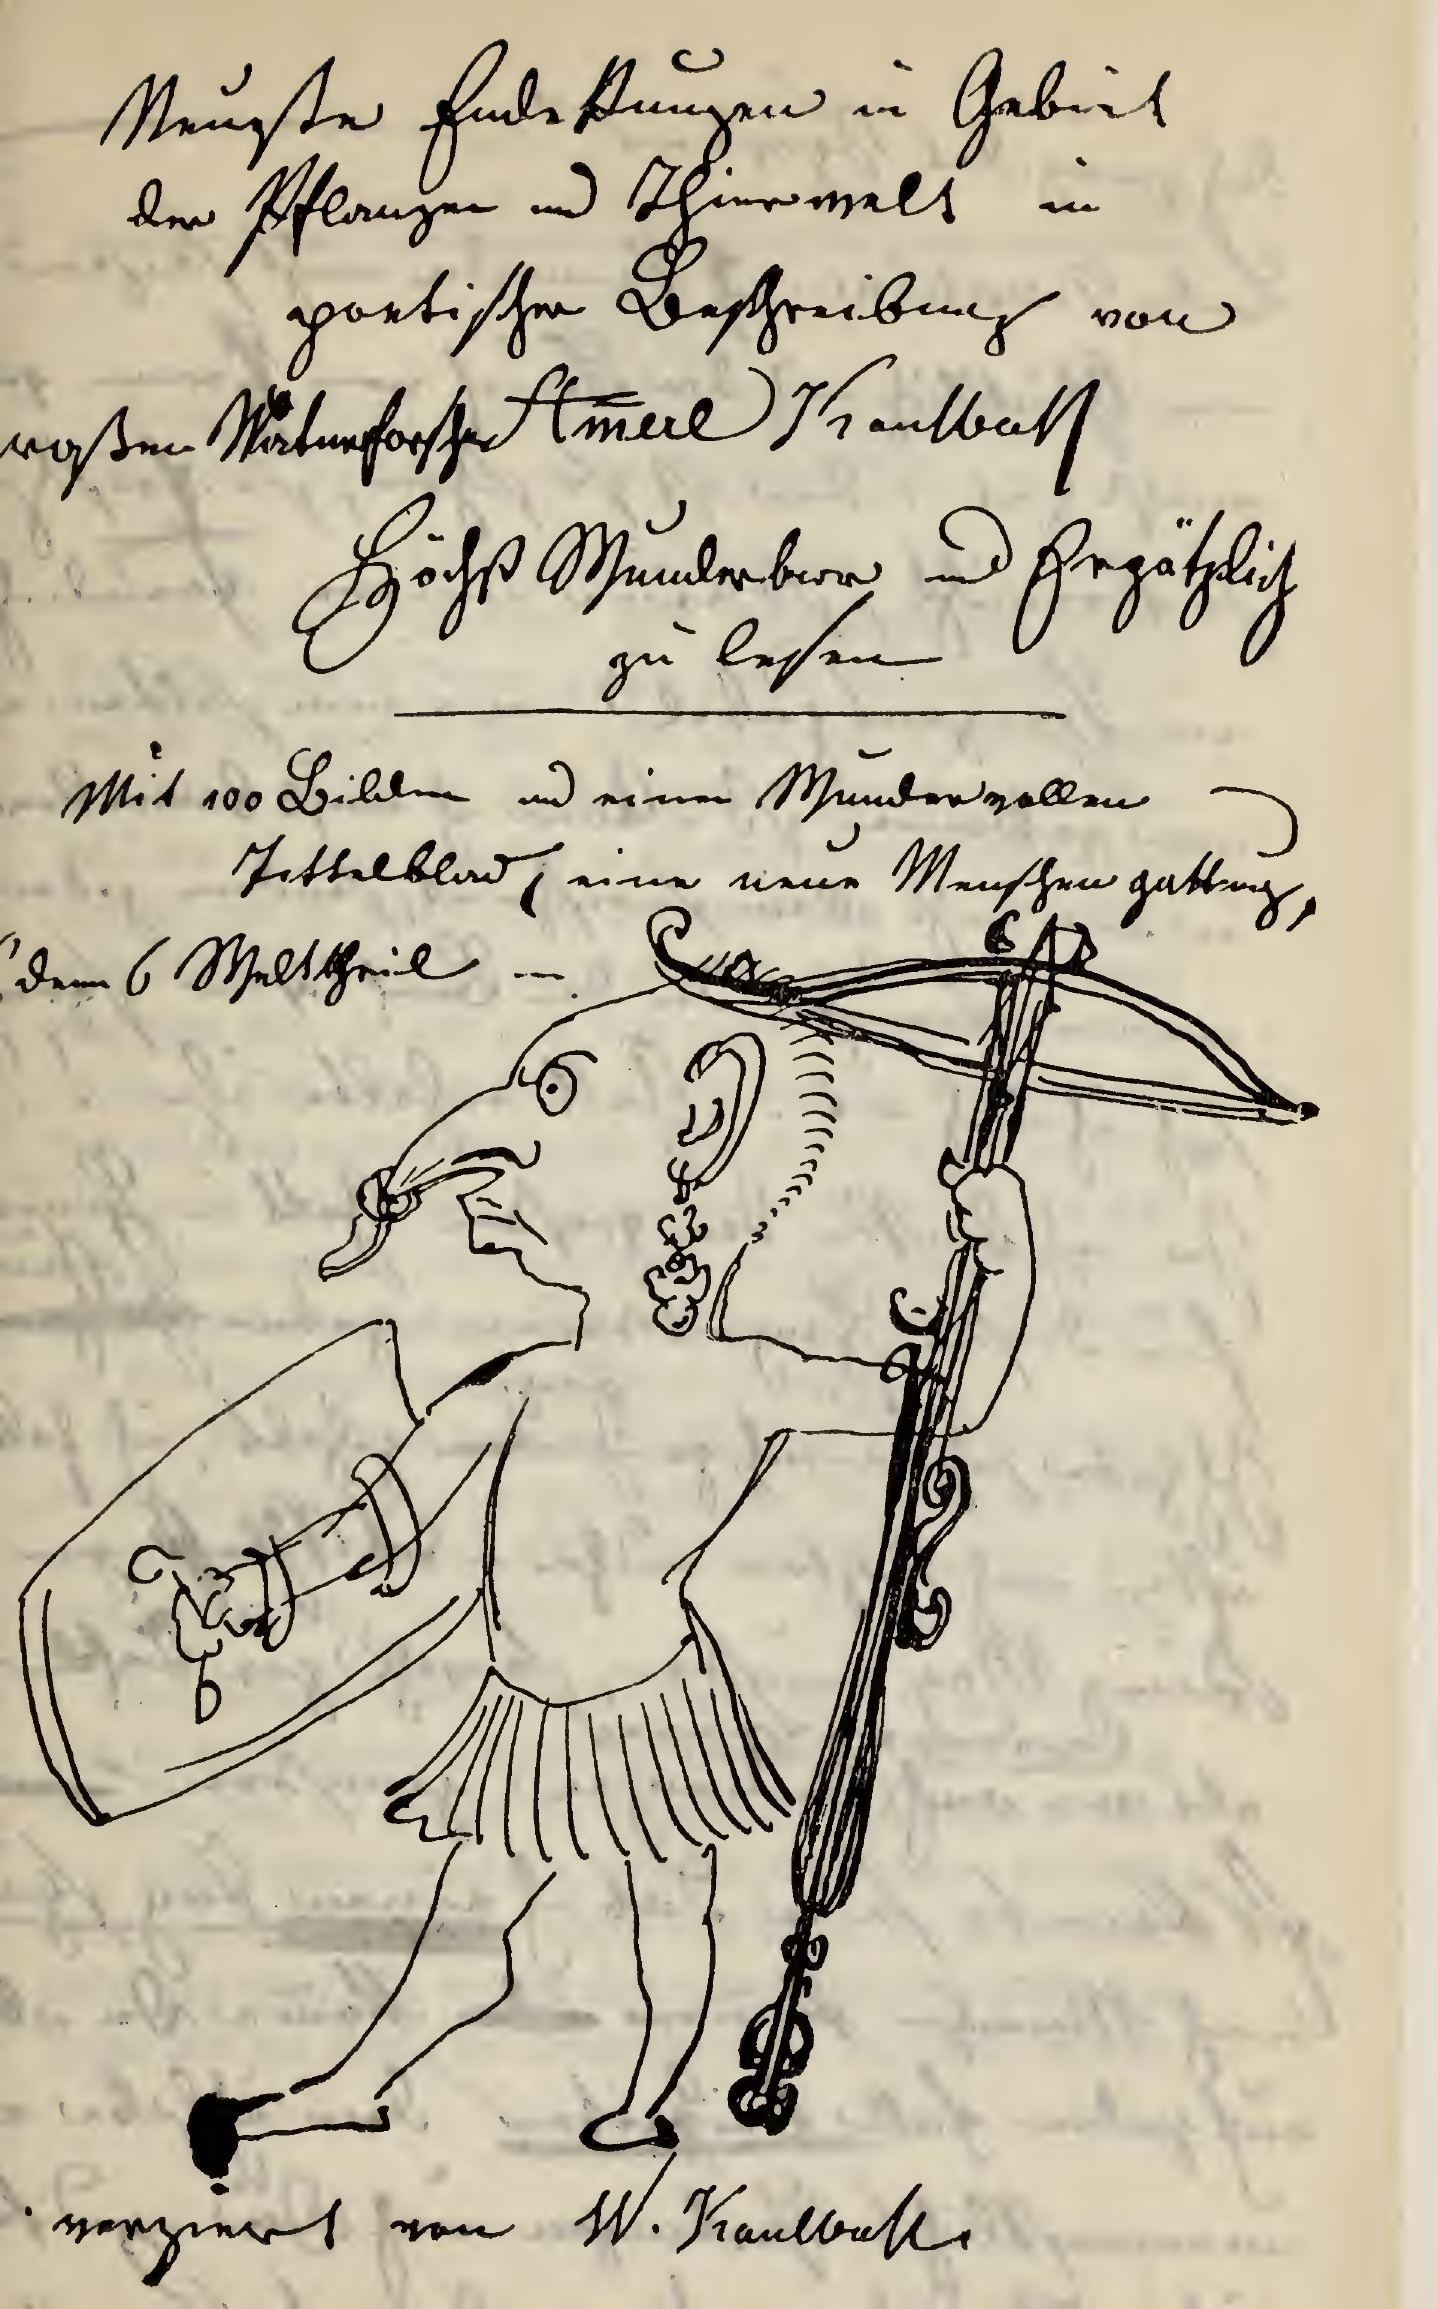 Neueste Endekungen in Gebiet
der Pflanzen und Thierwelt in
poetischer Beschreibung von
großen Naturforscher Kaulbach
Höchst Wunderbar und Ergötzlich
zu lessen
Mit 100 Bildern und einen Wundervollen
Tittelblad, eine neue Menschengattung,
dem 6 Welttheil
verziert von W. Kaulbach.